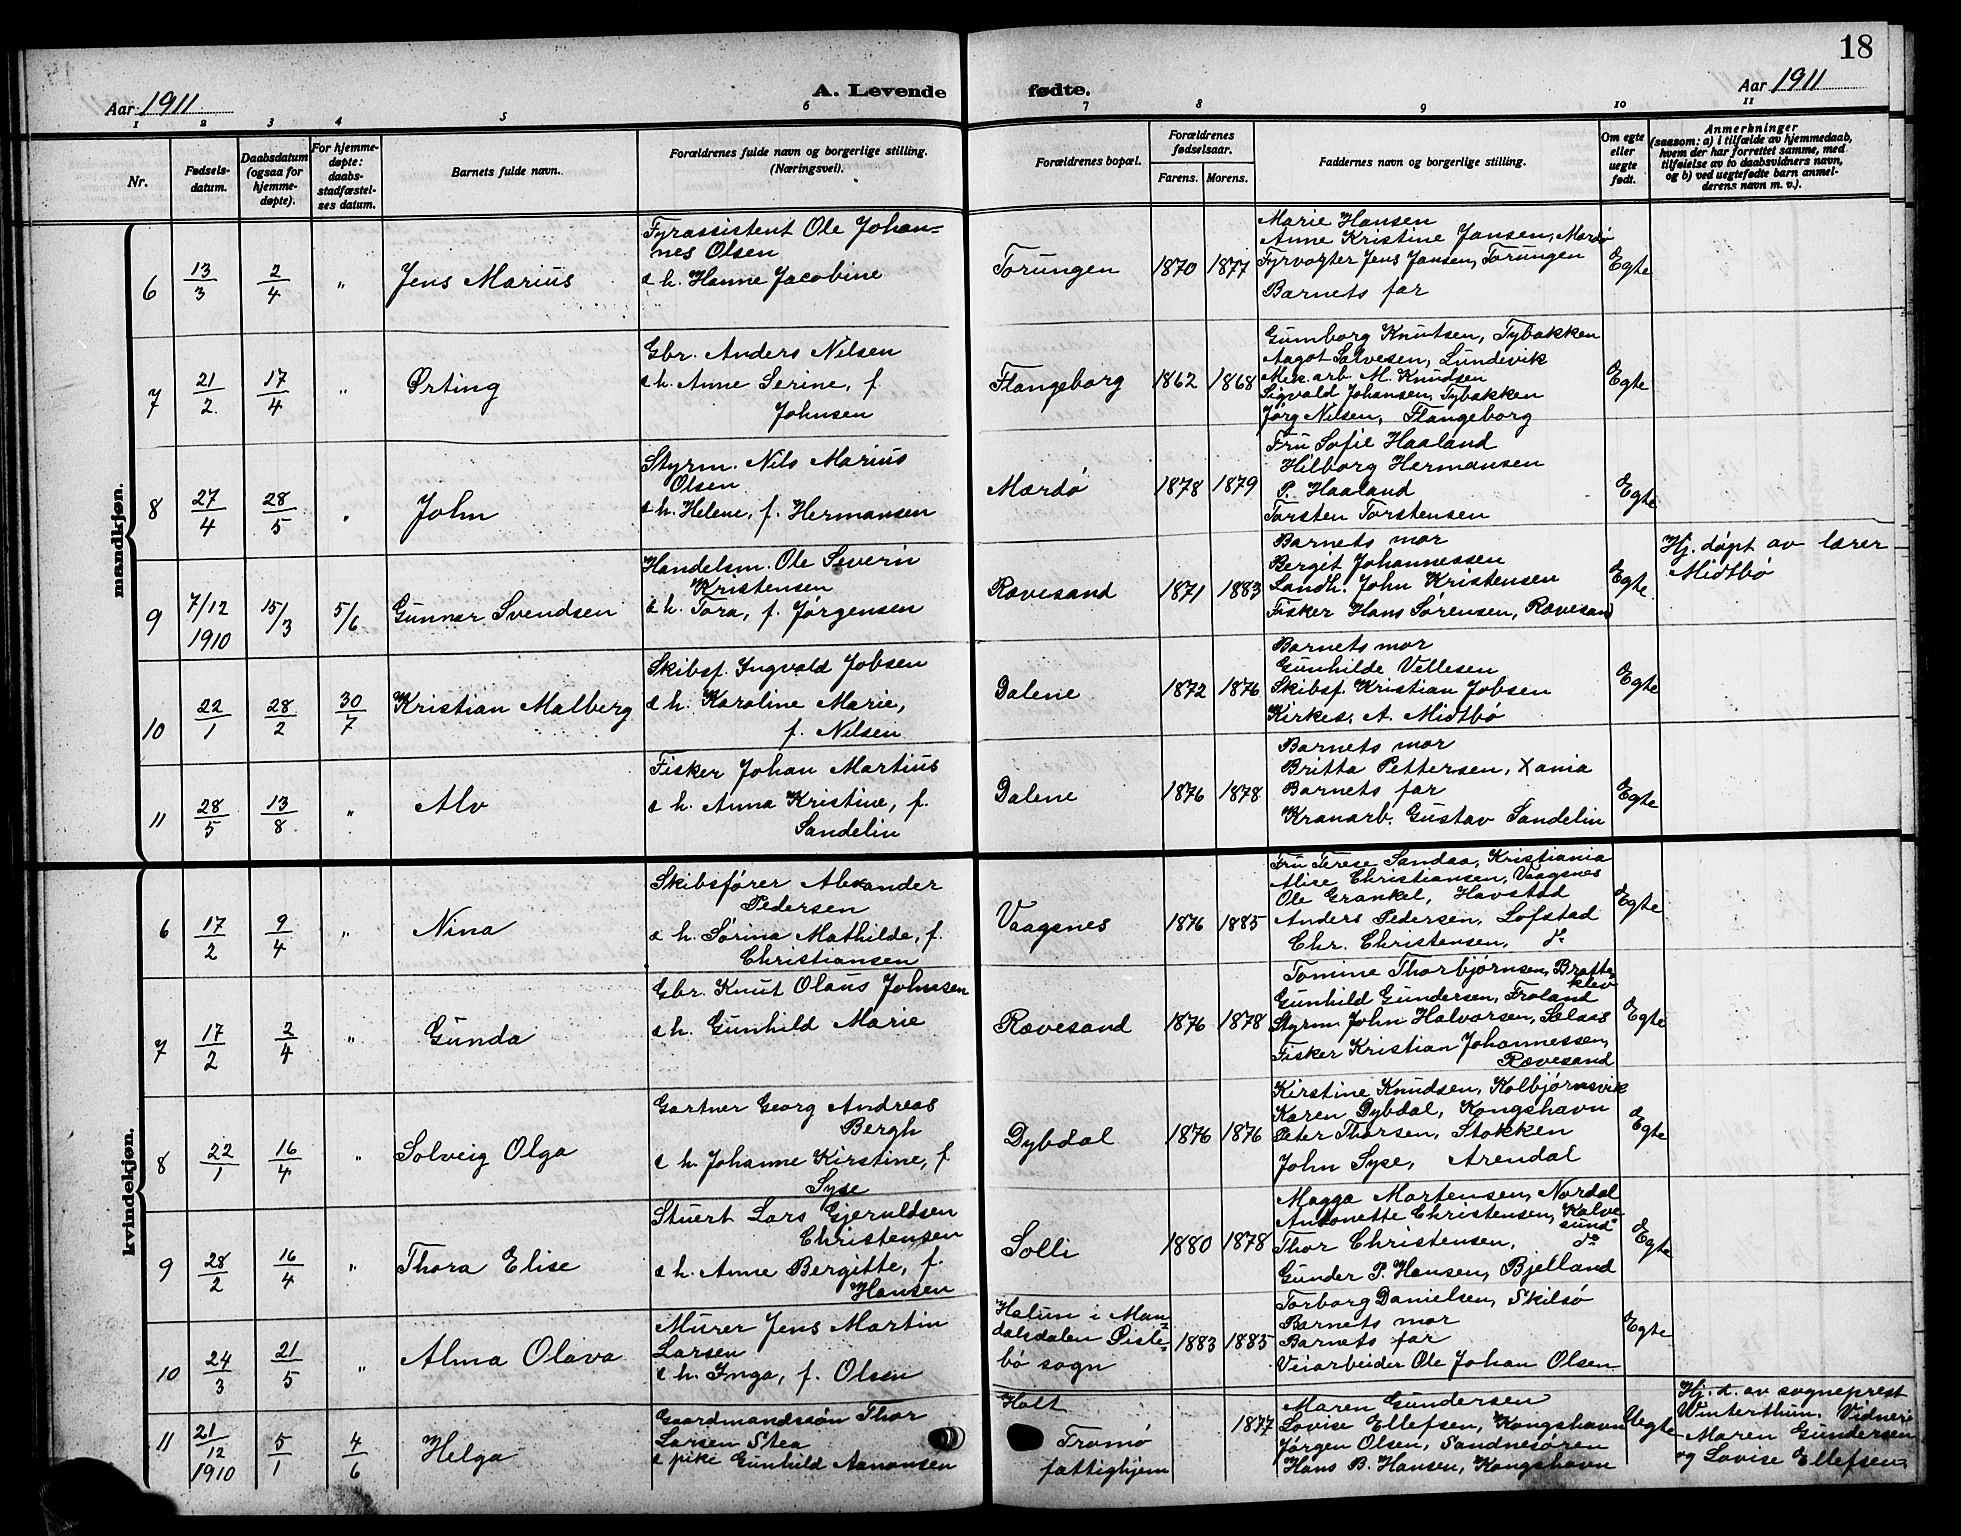 18
Aar 1911
A. Levende fødte.
Aar 1911
1 2 3 4 5 6 7 8 9 10 11
Nr.
Fødsels-
datum.
Daabsdatum
(ogsaa for
hjemme-
døpte).
For hjemme-
døpte:
daabs-
stadfæstel-
ses datum.
Barnets fulde navn.
Forældrenes fulde navn og borgerlige stilling.
(Næringsvei).
Forældrenes bopæl.
Forældrenes
fødselsaar.
Farens. Morens.
Faddernes navn og borgerlige stilling.
Om egte
eller
uegte
født.
Anmerkninger
(saasom: a) i tilfælde av hjemmedaab,
hvem der har forrettet samme, med
tilføielse av to daabsvidners navn,
og b) ved uegtefødte barn anmel-
derens navn m. v.).
mandkjøn.
6 13/3 2/4 " Jens Marius
Fyrassistent Ole Johan-
nes Olsen
& h. Hanne Jacobine
Torungen 1870 1877
Marie Hansen
Anne Kristine Jansen, Mærdø
Fyrvogter Jens Jansen, Torungen
Barnets far
Egte
7 21/2 17/4 " Ørting
Gbr. Anders Nilsen
& h. Anne Serine, f.
Johnsen
Flangeborg 1862 1868
Gumborg Knutsen, Tybakken
Aagot Salvesen, Lundevik
Mek. arb M. Knudsen
Sigvald Johansen, Tybakken
Jørg Nilsen, Flangeborg
Egte
8 27/4 28/5 " John
Styrm. Nils Marius
Olsen
& h. Helene, f. Hermansen
Mærdø 1878 1879
Fru Sofie Haaland
Hilborg Hermansen
P. Haaland
Torsten Torstensen
Egte
9 7/12 1910 15/3 5/6 Gunnar Svendsen
Handelsm. Ole Severin
Kristensen
& h. Tora, f. Jørgensen
Rævesand 1871 1883
Barnets mor
Bergit Johannessen
Landh. John Kristensen
Fisker Hans Sørensen, Rævesand
Egte
Hj. døpt av lærer
Midtbø
10 22/1 28/2 30/7 Kristian Malberg
Skibsf. Ingvald Jobsen
& h. Karoline Marie,
f. Nilsen
Dalene 1872 1876
Barnets mor
Gunhilde Vellesen
Skibsf. Kristian Jobsen
Kirkes. A. Midtbø
Egte
11 28/5 13/8 " Alv
Fisker Johan Martius
& h. Anna Kristine, f.
Sandelin
Dalene 1876 1878
Barnets mor
Britta Pettersen, Xania
Barnets far
Kranarb. Gustav Sandelin
Egte
kvindekjøn.
6 17/2 9/4 " Nina
Skibsfører Alexander
Pedersen
& h. Sørina Mathilde, f.
Christiansen
Vaagsnes 1876 1885
Fru Terese Sandaa, Kristiania
Alise Christiansen, Vaagsnes
Ole Grankel, Havstad
Anders Pedersen, Lofstad
Chr. Christensen, do
Egte
7 17/2 2/4 " Gunda
Gbr. Knut Olaus Johnsen
& h. Gunhild Marie
Rævesand 1876 1878
Tomine Thorbjørnsen, Bratte-
klev
Gunhild Gundersen, Froland
Styrm John Halvorsen, Salaas
Fisker Kristian Johannessen,
Rævesand
Egte
8 22/1 16/4 " Solveig Olga
Gartner Georg Andreas
Bergh
& h. Johanne Kirstine, f
Syse
Dybdal 1876 1876
Kirstine Knudsen, Kolbjørnsvik
Karen Dybdal, Kongshavn
Peter Thorsen, Stokken
John Syse, Arendal
Egte
9 28/2 16/4 " Thora Elise
Stuert Lars Gjeruldsen
Christensen
& h. Anne Bergitte, f.
Hansen
Solli 1880 1878
Magga Mortensen, Nordal
Antonette Christensen, Kalve
sund
Thor Christensen, do
Gunder P. Hansen, Bjelland
Egte
10 24/3 21/5 " Alma Olava
Murer Jens Martin
Larsen
& h. Inga, f. Olsen
Holum i Man-
dalsdalen Øisle-
bø sogn
1883 1885
Torborg Danielsen, Skilsø
Barnets mor
Barnets far
Veiarbeider Ole Johan Olsen
Egte
11 21/12 1910 5/1 4/6 Helga
Gaardmandssøn Thor
Larsen Stea
& pike Gunhild Aanonsen
Holt
Tromø
fattighjem
1877
Maren Gundersen
Lovise Ellefsen, Kongshavn
Jørgen Olsen, Sandnesøren
Hans B. Hansen, Kongshavn
Uegte
Hj. d. av sogneprest
Winterthun. Vidner:
Maren Gundersen
og Lovise Ellefsen